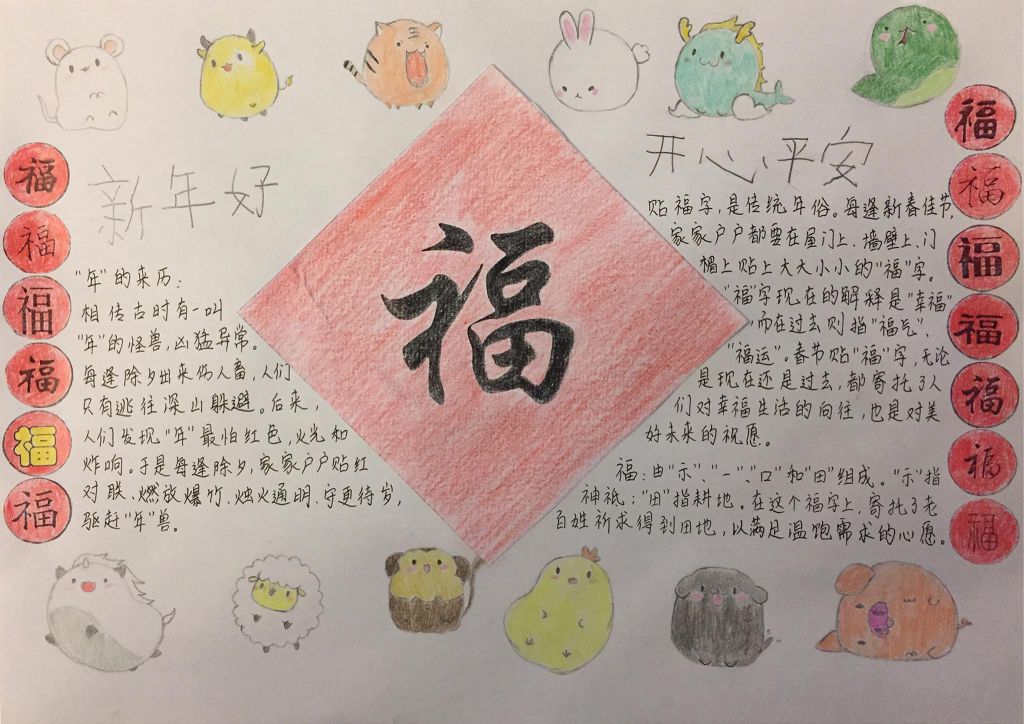 新年好
"年"的来历:
相传古时有一叫
"年"的怪兽,凶猛异常。
每逢除夕出来伤人畜,人们
只有逃往深山躲避。后来,
人们发现"年"最怕红色,火光和
炸响。于是每逢除夕,家家户户贴红
对联、燃放爆竹、烛火通明、守更待岁,
驱赶"年"兽。
福
福
福
福
福
福
福
开心平安
贴福字,是传统年俗。每逢新春佳节,
家家户户都要在屋门上、墙壁上、门
楣上贴上大大小小的"福"字。
"福"字现在的解释是"幸福"
,而在过去则指"福气"、
"福运"。春节贴"福"字,无论
是现在还是过去,都寄托了人
们对幸福生活的向往,也是对美
好未来的祝愿。
福:由"示"、"一"、"口"和"田"组成。"示"指
神祇;"田"指耕地。在这个福字上,寄托了老
百姓祈求得到田地,以满足温饱需求的心愿。
福
福
福
福
福
福
福